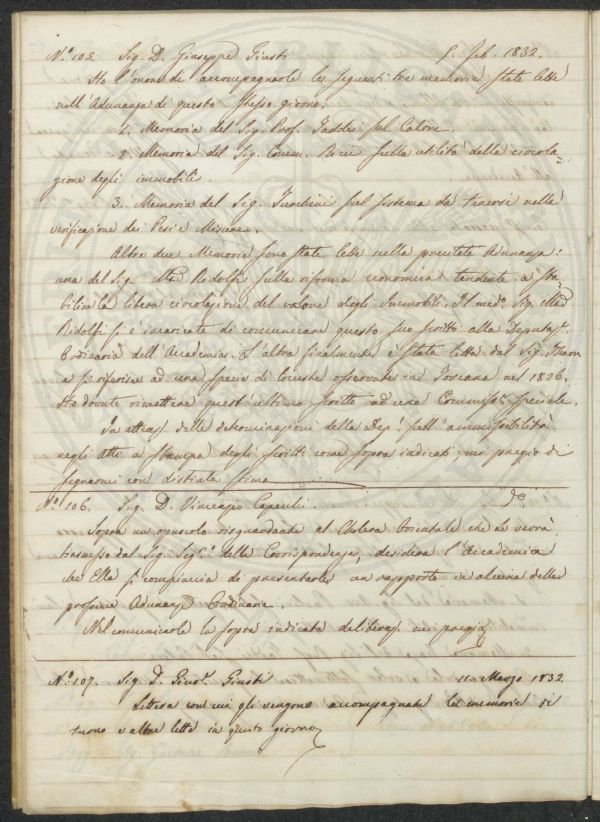 N.° 105. Sig. D. Giuseppe Giusti 5. Feb. 1832.
Ho l'onore di accompagnarle le seguenti tre memorie state lette
nell'Adunanza di questo stesso giorno.
1. Memoria del Sig. Prof. Taddei sul Calore.
2. Memoria del Sig. Ricci sulla utilità della circola=
gione degli immobili.
3. Memoria del Sig. sul sistema da tenersi nella
verificazione dei Pesi e Misure.
Altre due Memorie sono state lette nella precitata Adunanza:
una del Sig. Ridolfi sulla riforma economica tendente a sta
bilire la libera circolazione del valore degli Immobili. Il med.° Sig.
Ridolfi si è incaricato di comunicare questo suo scritto alla Deputaz.e
Ordinaria dell'Accademia. L'altra finalmente è stata letta dal Sig.
e si riferisce ad una specie di osservate in Toscana nel 1826.
Ho dovuto rimettere quest'ultimo scritto ad una Commiss.e speciale.
In attenz. delle determinazioni della Dep.e sull'ammissibilità
negli Atti a stampa degli scritti come sopra indicati, mi pregio di
segnarmi con distinta stima
N.° 106. Sig. D. Vincenzio Capecchi. D.°
Sopra un opuscolo risguardante al Cholera Orientale che Le verrà
trasmesso dal Sig. Seg.rio delle Corrispondenze, desidera l'Accademia
che Ella si compiaccia di presentarle un rapporto in alcuna delle
prossime Adunanze Ordinarie.
Nel comunicarle la sopra indicata deliberaz. mi pregio
N.° 107. Sig. D. Gius.e Giusti 11 Marzo 1832.
Lettera con cui gli vengono accompagnate le memorie di
turno e altre lette in questo giorno